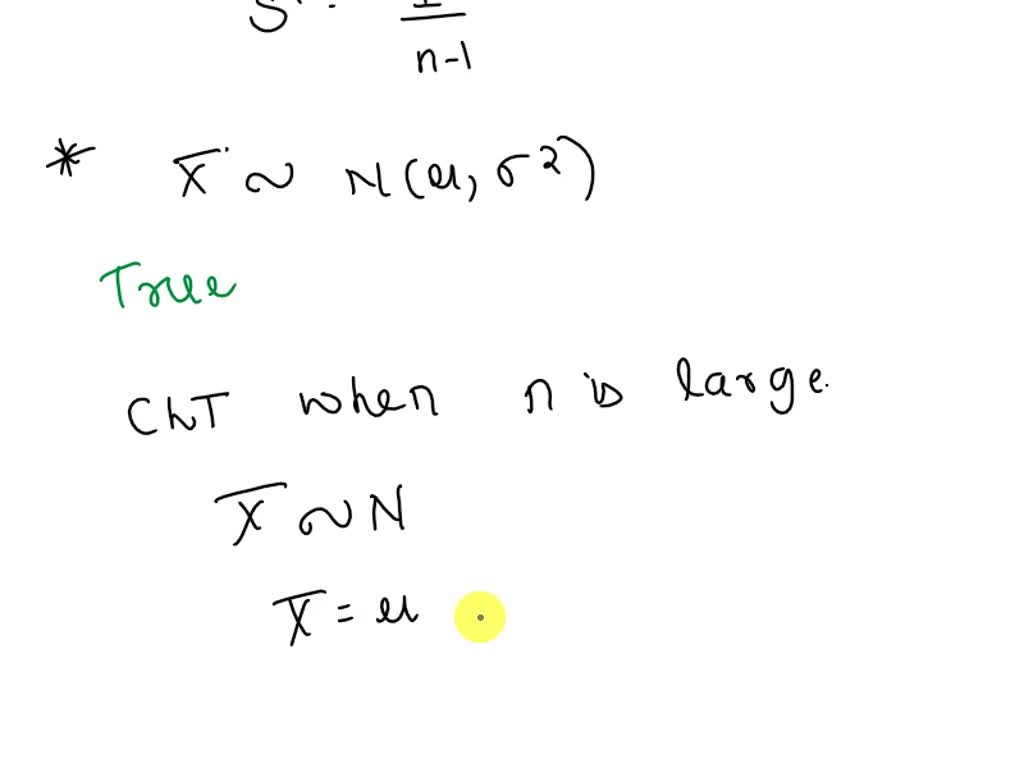 n-1
* X̄ ~ N(μ, σ²)
True
CLT when n is large.
X̄ ~ N
X̄ = μ